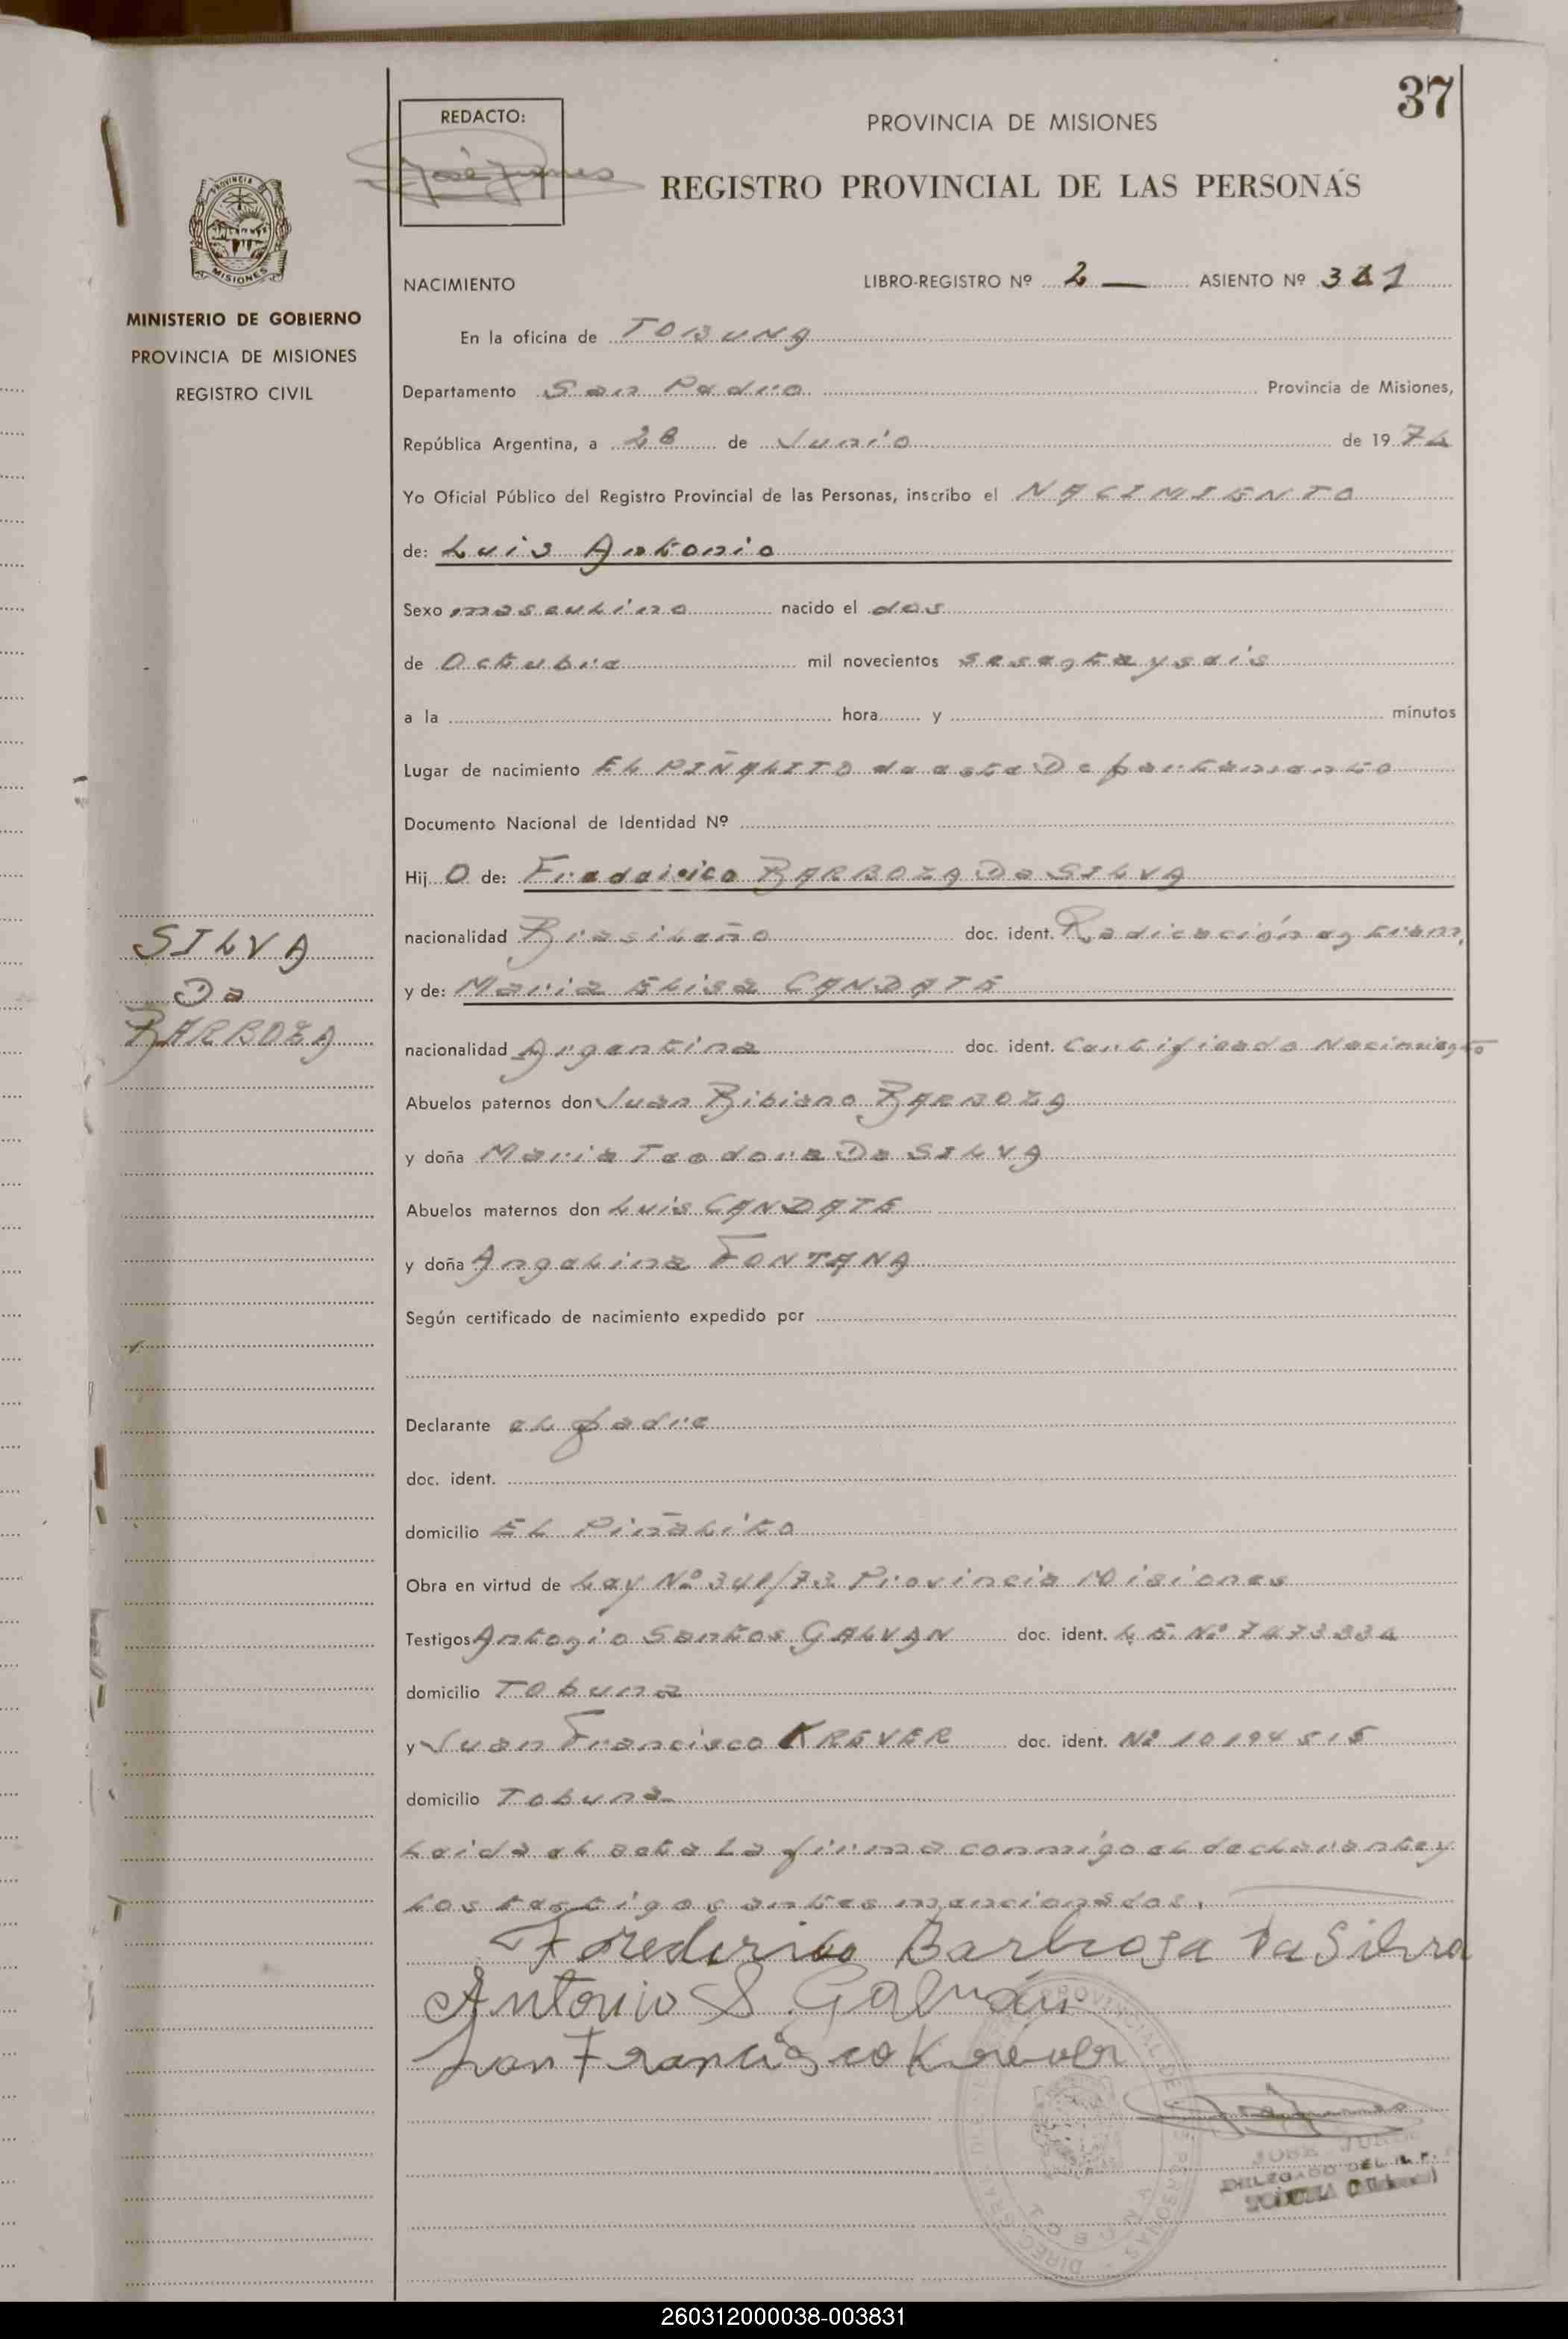 37
REDACTO:
PROVINCIA DE MISIONES
REGISTRO PROVINCIAL DE LAS PERSONAS
PROVINCIA DE
MISIONES
MINISTERIO DE GOBIERNO
PROVINCIA DE MISIONES
REGISTRO CIVIL
NACIMIENTO LIBRO-REGISTRO Nº 2 — ASIENTO Nº
En la oficina de TOBUNA
Departamento San Pedro Provincia de Misiones,
República Argentina, a 28 de Junio de 1974
Yo Oficial Público del Registro Provincial de las Personas, inscribo el NACIMIENTO
de: Luis Antonio
Sexo masculino nacido el dos
de Octubre mil novecientos sesenta y seis
a la hora y minutos
Lugar de nacimiento EL PIÑALITO de este Departamento
Documento Nacional de Identidad Nº
Hij O de: Frederico BARBOZA Da SILVA
nacionalidad Brasileño doc. ident. Radicación en tram.
y de: Maria Elisa CANDATE
nacionalidad Argentina doc. ident. Certificado Nacimiento
SILVA
Da
BARBOZA
Abuelos paternos don Juan Bibiano BARBOZA
y doña Maria Teodora Da SILVA
Abuelos maternos don Luis CANDATE
y doña Angelina FONTANA
Según certificado de nacimiento expedido por
Declarante el padre
doc. ident.
domicilio EL Piñalito
Obra en virtud de Ley Nº 341/73 Provincia Misiones
Testigos Antonio Santos GALVAN doc. ident. L.E. Nº
domicilio Tobuna
y Juan Francisco KREVER doc. ident. Nº 10194515
domicilio Tobuna
Leida el acta la firma conmigo el declarante y
los testigos antes mencionados.
Frederico Barboza Da Silva
Antonio S Galván
Juan Francisco Krever
JOSE
DELEGADO DEL R. P.
260312000038-003831